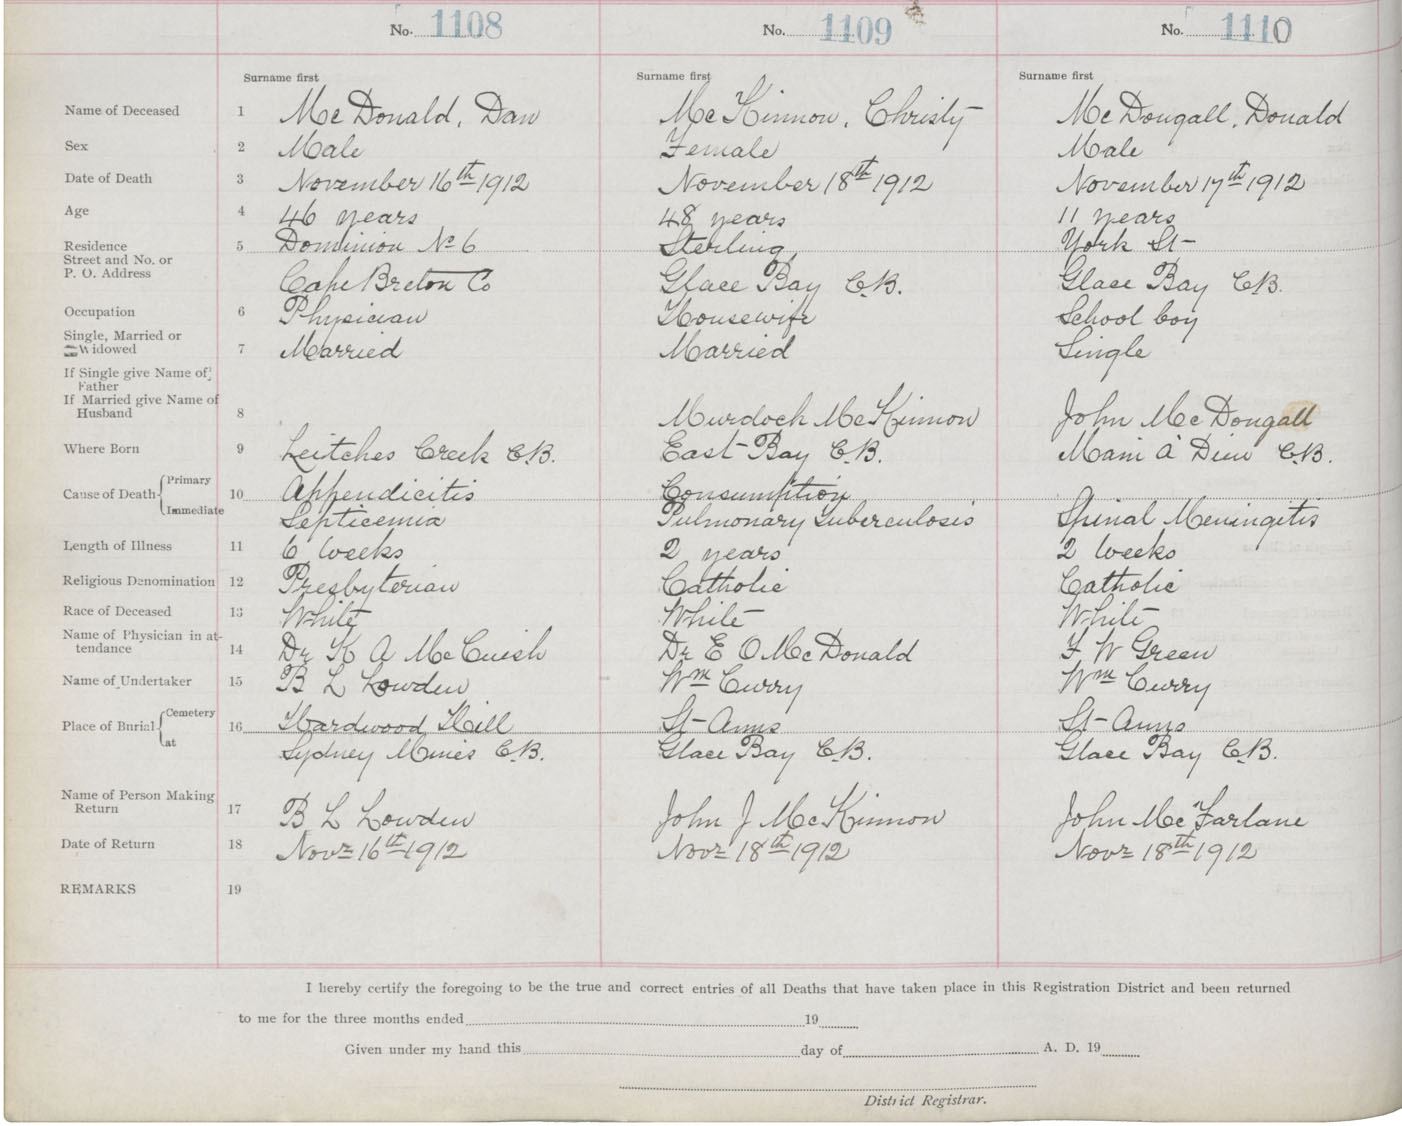 No. 1108 No. 1109 No. 1110
Surname first Surname first Surname first
Name of Deceased 1 McDonald, Dan McKinnon, Christy McDougall, Donald
Sex 2 Male Female Male
Date of Death 3 November 16th 1912 November 18th 1912 November 17th 1912
Age 4 46 years 48 years 11 years
Residence 5 Dominion No 6 Sterling York St
Street and No. or
P. O. Address Cape Breton Co Glace Bay C.B. Glace Bay C.B.
Occupation 6 Physician Housewife School boy
Single, Married or
Widowed 7 Married Married Single
If Single give Name of
Father
If Married give Name of
Husband 8 Murdoch McKinnon John McDougall
Where Born 9 Leitches Creek C.B. East Bay C.B. Main à Dieu C.B.
Cause of Death Primary 10 Appendicitis Consumption
Immediate Septicemia Pulmonary Tuberculosis Spinal Meningitis
Length of Illness 11 6 Weeks 2 years 2 Weeks
Religious Denomination 12 Presbyterian Catholic Catholic
Race of Deceased 13 White White White
Name of Physician in at-
tendance 14 Dr K A McCuish Dr E O McDonald F W Green
Name of Undertaker 15 B L Lowden Wm Curry Wm Curry
Place of Burial Cemetery 16 Hardwood Hill St Anns St Anns
at Sydney Mines C.B. Glace Bay C.B. Glace Bay C.B.
Name of Person Making
Return 17 B L Lowden John J McKinnon John McFarlane
Date of Return 18 Novr 16th 1912 Novr 18th 1912 Novr 18th 1912
REMARKS 19
I hereby certify the foregoing to be the true and correct entries of all Deaths that have taken place in this Registration District and been returned
to me for the three months ended 19
Given under my hand this day of A. D. 19
District Registrar.